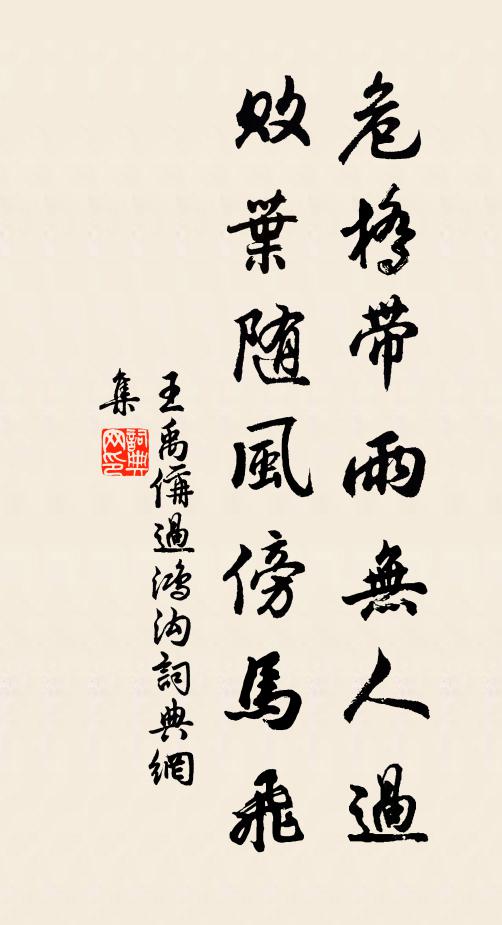 危橋帶雨無人過
敗葉随風傍馬飛
王禹偁過鴻沟詞典網
集
詞典网印